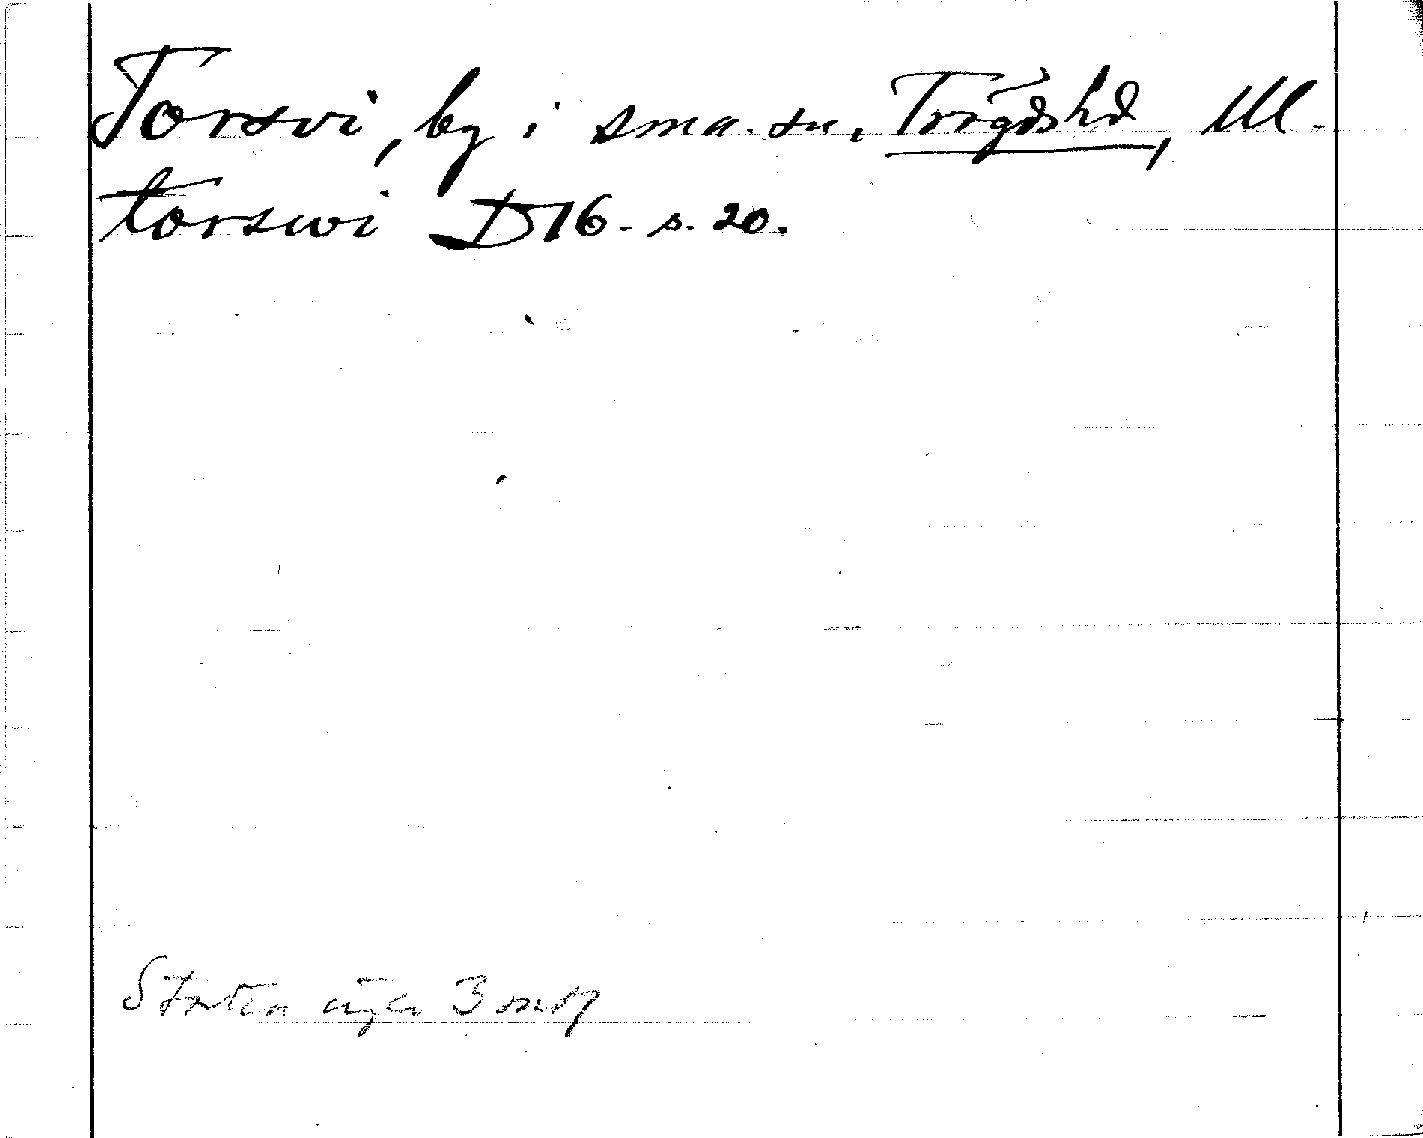 Torsvi, by i sma. sn, Trögds hd, Ul.
torswi D 16. s. 20.
Staten äger 3 mtl